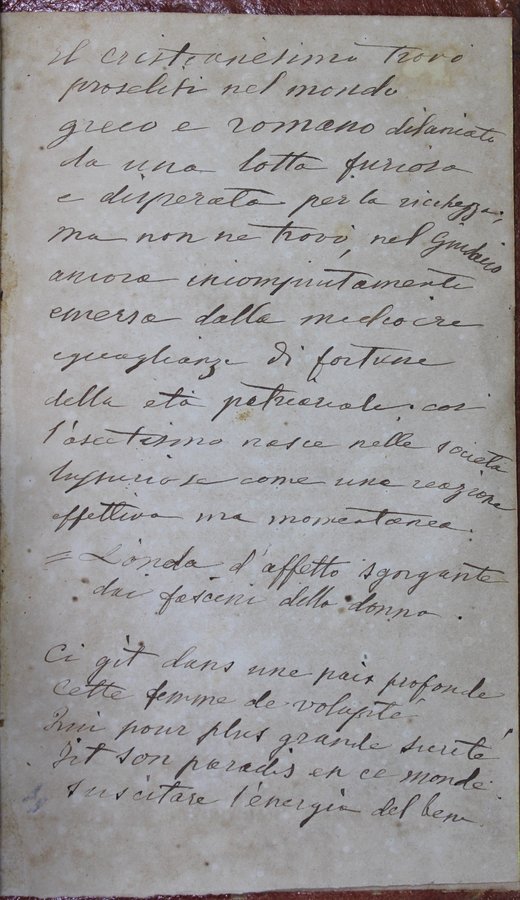 El cristianesimo trovò
proseliti nel mondo
greco e romano dilaniato
da una lotta furiosa
e disperata per la ricchezza;
ma non ne trovò, nel Giudaico
ancora incompiutamente
emerso dalla mediocre
eguaglianza di fortune
della età patriarcale. così
l'ascetismo nasce nelle società
lussuriose come una reazione
effettiva ma momentanea.
= L'onda d'affetto sgorgante
dai fascini della donna.
Ci gît dans une paix profonde
Cette femme de volupté
Qui pour plus grande sureté
Fit son paradis en ce monde.
suscitare l'energia del bene